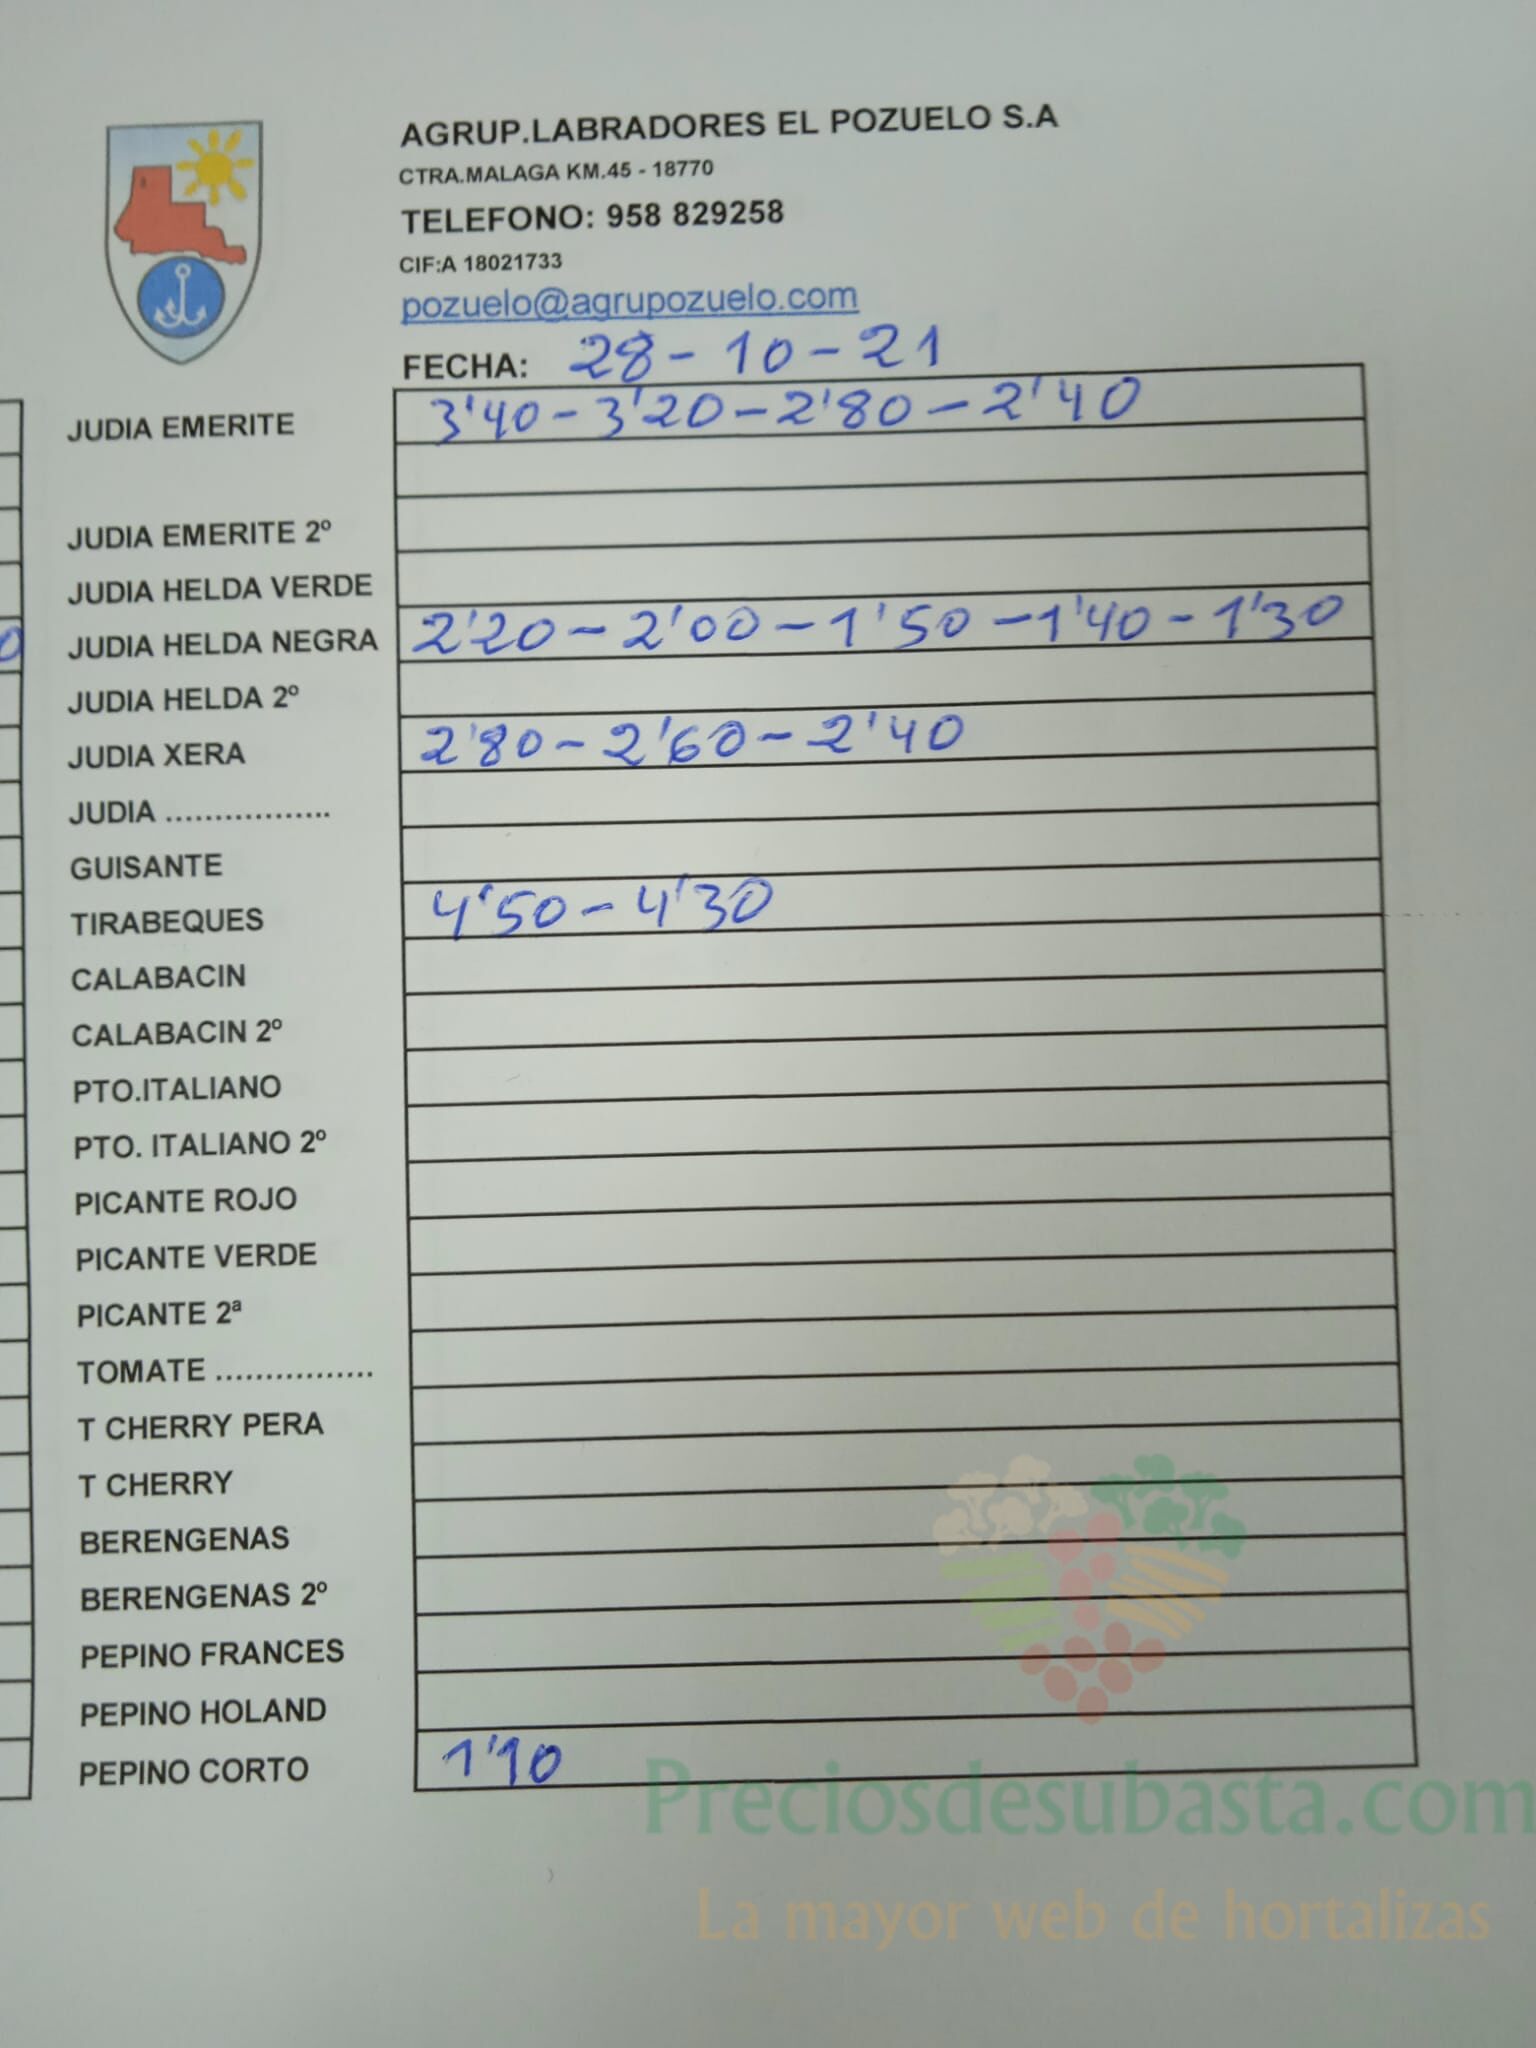 AGRUP.LABRADORES EL POZUELO S.A
CTRA.MALAGA KM.45 - 18770
TELEFONO: 958 829258
CIF:A 18021733
pozuelo@agrupozuelo.com
FECHA: 28-10-21
JUDIA EMERITE 3'40-3'20-2'80-2'40
JUDIA EMERITE 2º
JUDIA HELDA VERDE
JUDIA HELDA NEGRA 2'20-2'00-1'50-1'40-1'30
JUDIA HELDA 2º
JUDIA XERA 2'80-2'60-2'40
JUDIA .................
GUISANTE
TIRABEQUES 4'50-4'30
CALABACIN
CALABACIN 2º
PTO.ITALIANO
PTO. ITALIANO 2º
PICANTE ROJO
PICANTE VERDE
PICANTE 2ª
TOMATE ................
T CHERRY PERA
T CHERRY
BERENGENAS
BERENGENAS 2º
PEPINO FRANCES
PEPINO HOLAND
PEPINO CORTO 1'10
Preciosdesubasta.com
La mayor web de hortalizas